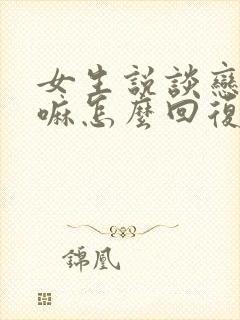 女生説談戀
嘛怎麼回復
錦凰